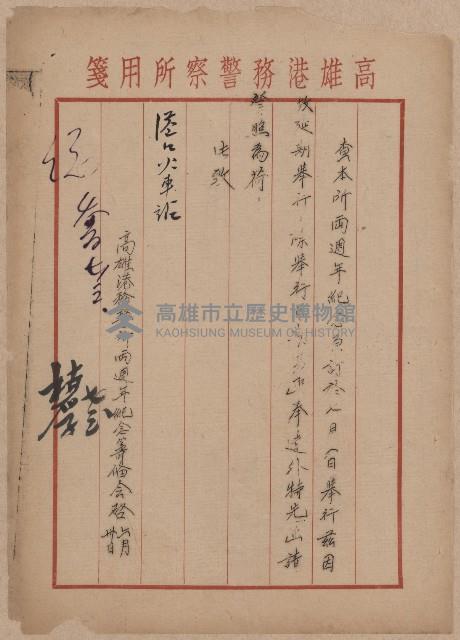 高雄港務警察所用箋
查本所兩週年紀念原訂於七月一日舉行茲因
故延期舉行，除舉行日期另行奉達外特先函請
詧照為荷，
此致
港口火車站
高雄港務警察所兩週年紀念籌備會啓 六月卅日
高雄市立歷史博物館
KAOHSIUNG MUSEUM OF HISTORY